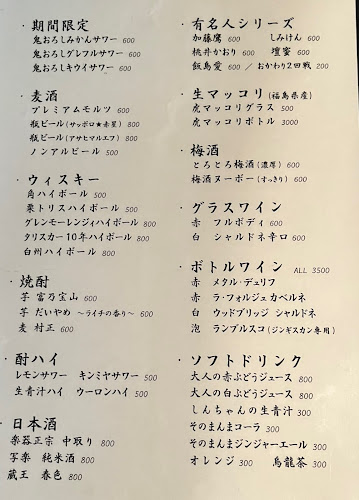 ・期間限定
鬼おろしみかんサワー 600
鬼おろしグレフルサワー 600
鬼おろしキウイサワー 600
・麦酒
プレミアムモルツ 600
瓶ビール(サッポロ★赤星) 800
瓶ビール(アサヒマルエフ) 800
ノンアルビール 500
・ウィスキー
角ハイボール 500
栗トリスハイボール 500
グレンモーレンジィハイボール 800
タリスカー10年ハイボール 800
白州ハイボール 800
・焼酎
芋 富乃宝山 600
芋 だいやめ ～ライチの香り～ 600
麦 村正 600
・酎ハイ
レモンサワー キンミヤサワー 500
生青汁ハイ ウーロンハイ 500
・日本酒
楽器正宗 中取り 800
写楽 純米酒 800
蔵王 春色 800
・有名人シリーズ
加藤鷹 600 しみけん 600
桃井かおり 600 壇蜜 600
飯島愛 600 / おかわり2回戦 200
・生マッコリ(福島県産)
虎マッコリグラス 500
虎マッコリボトル 3000
・梅酒
とろとろ梅酒(濃厚) 600
梅酒ヌーボー(すっきり) 600
・グラスワイン
赤 フルボディ 600
白 シャルドネ辛口 600
・ボトルワイン ALL 3500
赤 メタル・デュリフ
赤 ラ・フォルジュカベルネ
白 ウッドブリッジ シャルドネ
泡 ランブルスコ(ジンギスカン専用)
・ソフトドリンク
大人の赤ぶどうジュース 800
大人の白ぶどうジュース 800
しんちゃんの生青汁 300
そのまんまコーラ 300
そのまんまジンジャーエール 300
オレンジ 300 烏龍茶 300